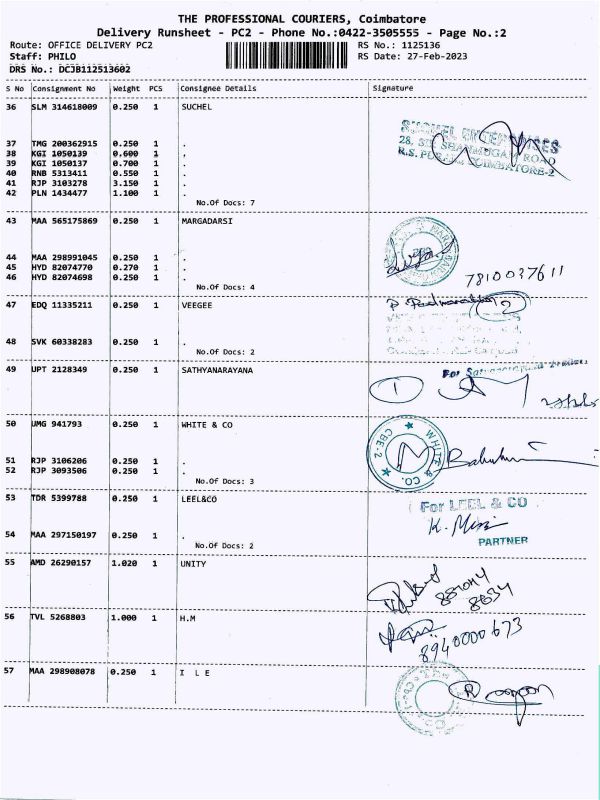 THE PROFESSIONAL COURIERS, Coimbatore
Delivery Runsheet - PC2 - Phone No.:0422-3505555 - Page No.:2
Route: OFFICE DELIVERY PC2
RS No.: 1125136
Staff: PHILO
RS Date: 27-Feb-2023
DRS No.: DCJB112513602
S No Consignment No Weight PCS Consignee Details Signature
36 SLM 314618009 0.250 1 SUCHEL
SUCHEL ENTERPRISES
28, SHANMUGAM ROAD
R.S. COIMBATORE-2
37 TMG 200362915 0.250 1 .
38 KGI 1050139 0.600 1 .
39 KGI 1050137 0.700 1 .
40 RNB 5313411 0.550 1 .
41 RJP 3103278 3.150 1 .
42 PLN 1434477 1.100 1 .
No.Of Docs: 7
43 MAA 565175869 0.250 1 MARGADARSI
44 MAA 298991045 0.250 1 .
45 HYD 82074770 0.270 1 .
46 HYD 82074698 0.250 1 .
7810037611
No.Of Docs: 4
47 EDQ 11335211 0.250 1 VEEGEE
2
48 SVK 60338283 0.250 1 .
No.Of Docs: 2
49 UPT 2128349 0.250 1 SATHYANARAYANA
For
1
50 UMG 941793 0.250 1 WHITE & CO
WHITE & CO. CBE-2
51 RJP 3106206 0.250 1 .
52 RJP 3093506 0.250 1 .
No.Of Docs: 3
53 TDR 5399788 0.250 1 LEEL&CO
For LEEL & CO
K. Mini
PARTNER
54 MAA 297150197 0.250 1 .
No.Of Docs: 2
55 AMD 26290157 1.020 1 UNITY
8634
56 TVL 5268803 1.000 1 H.M
8940000673
57 MAA 298908078 0.250 1 I L E